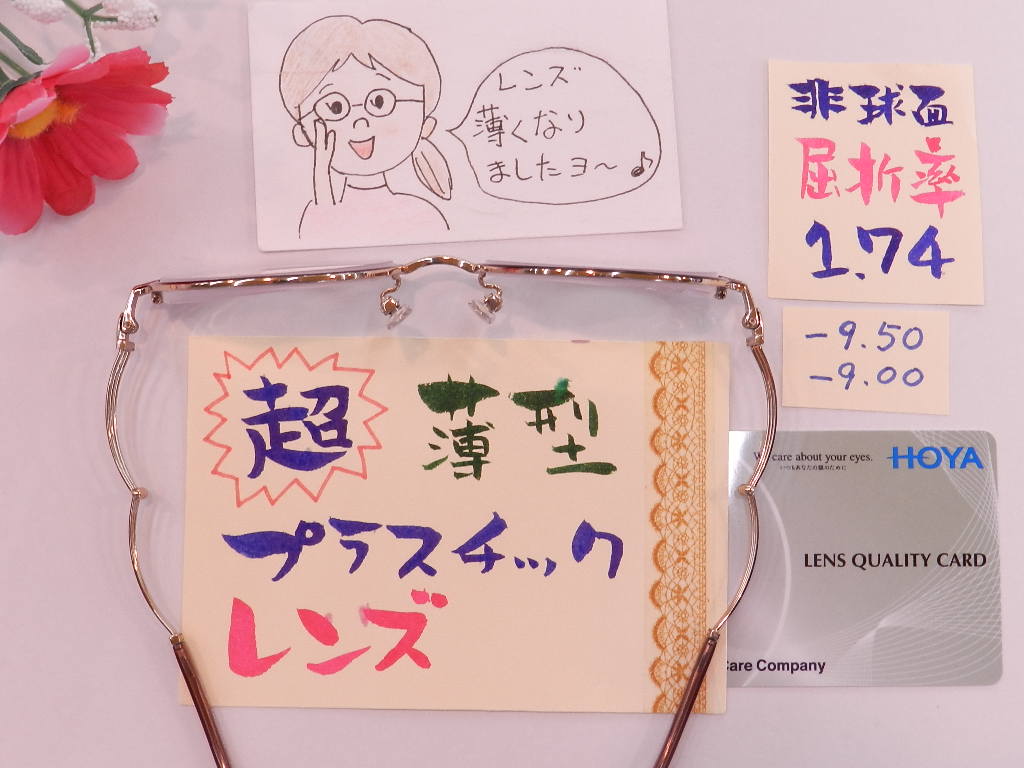 レンズ
薄くなり
ましたヨ～♪
非球面
屈折率
1.74
-9.50
-9.00
超薄型
プラスチック
レンズ
care about your eyes.
いつもあなたの瞳のために
HOYA
LENS QUALITY CARD
Care Company